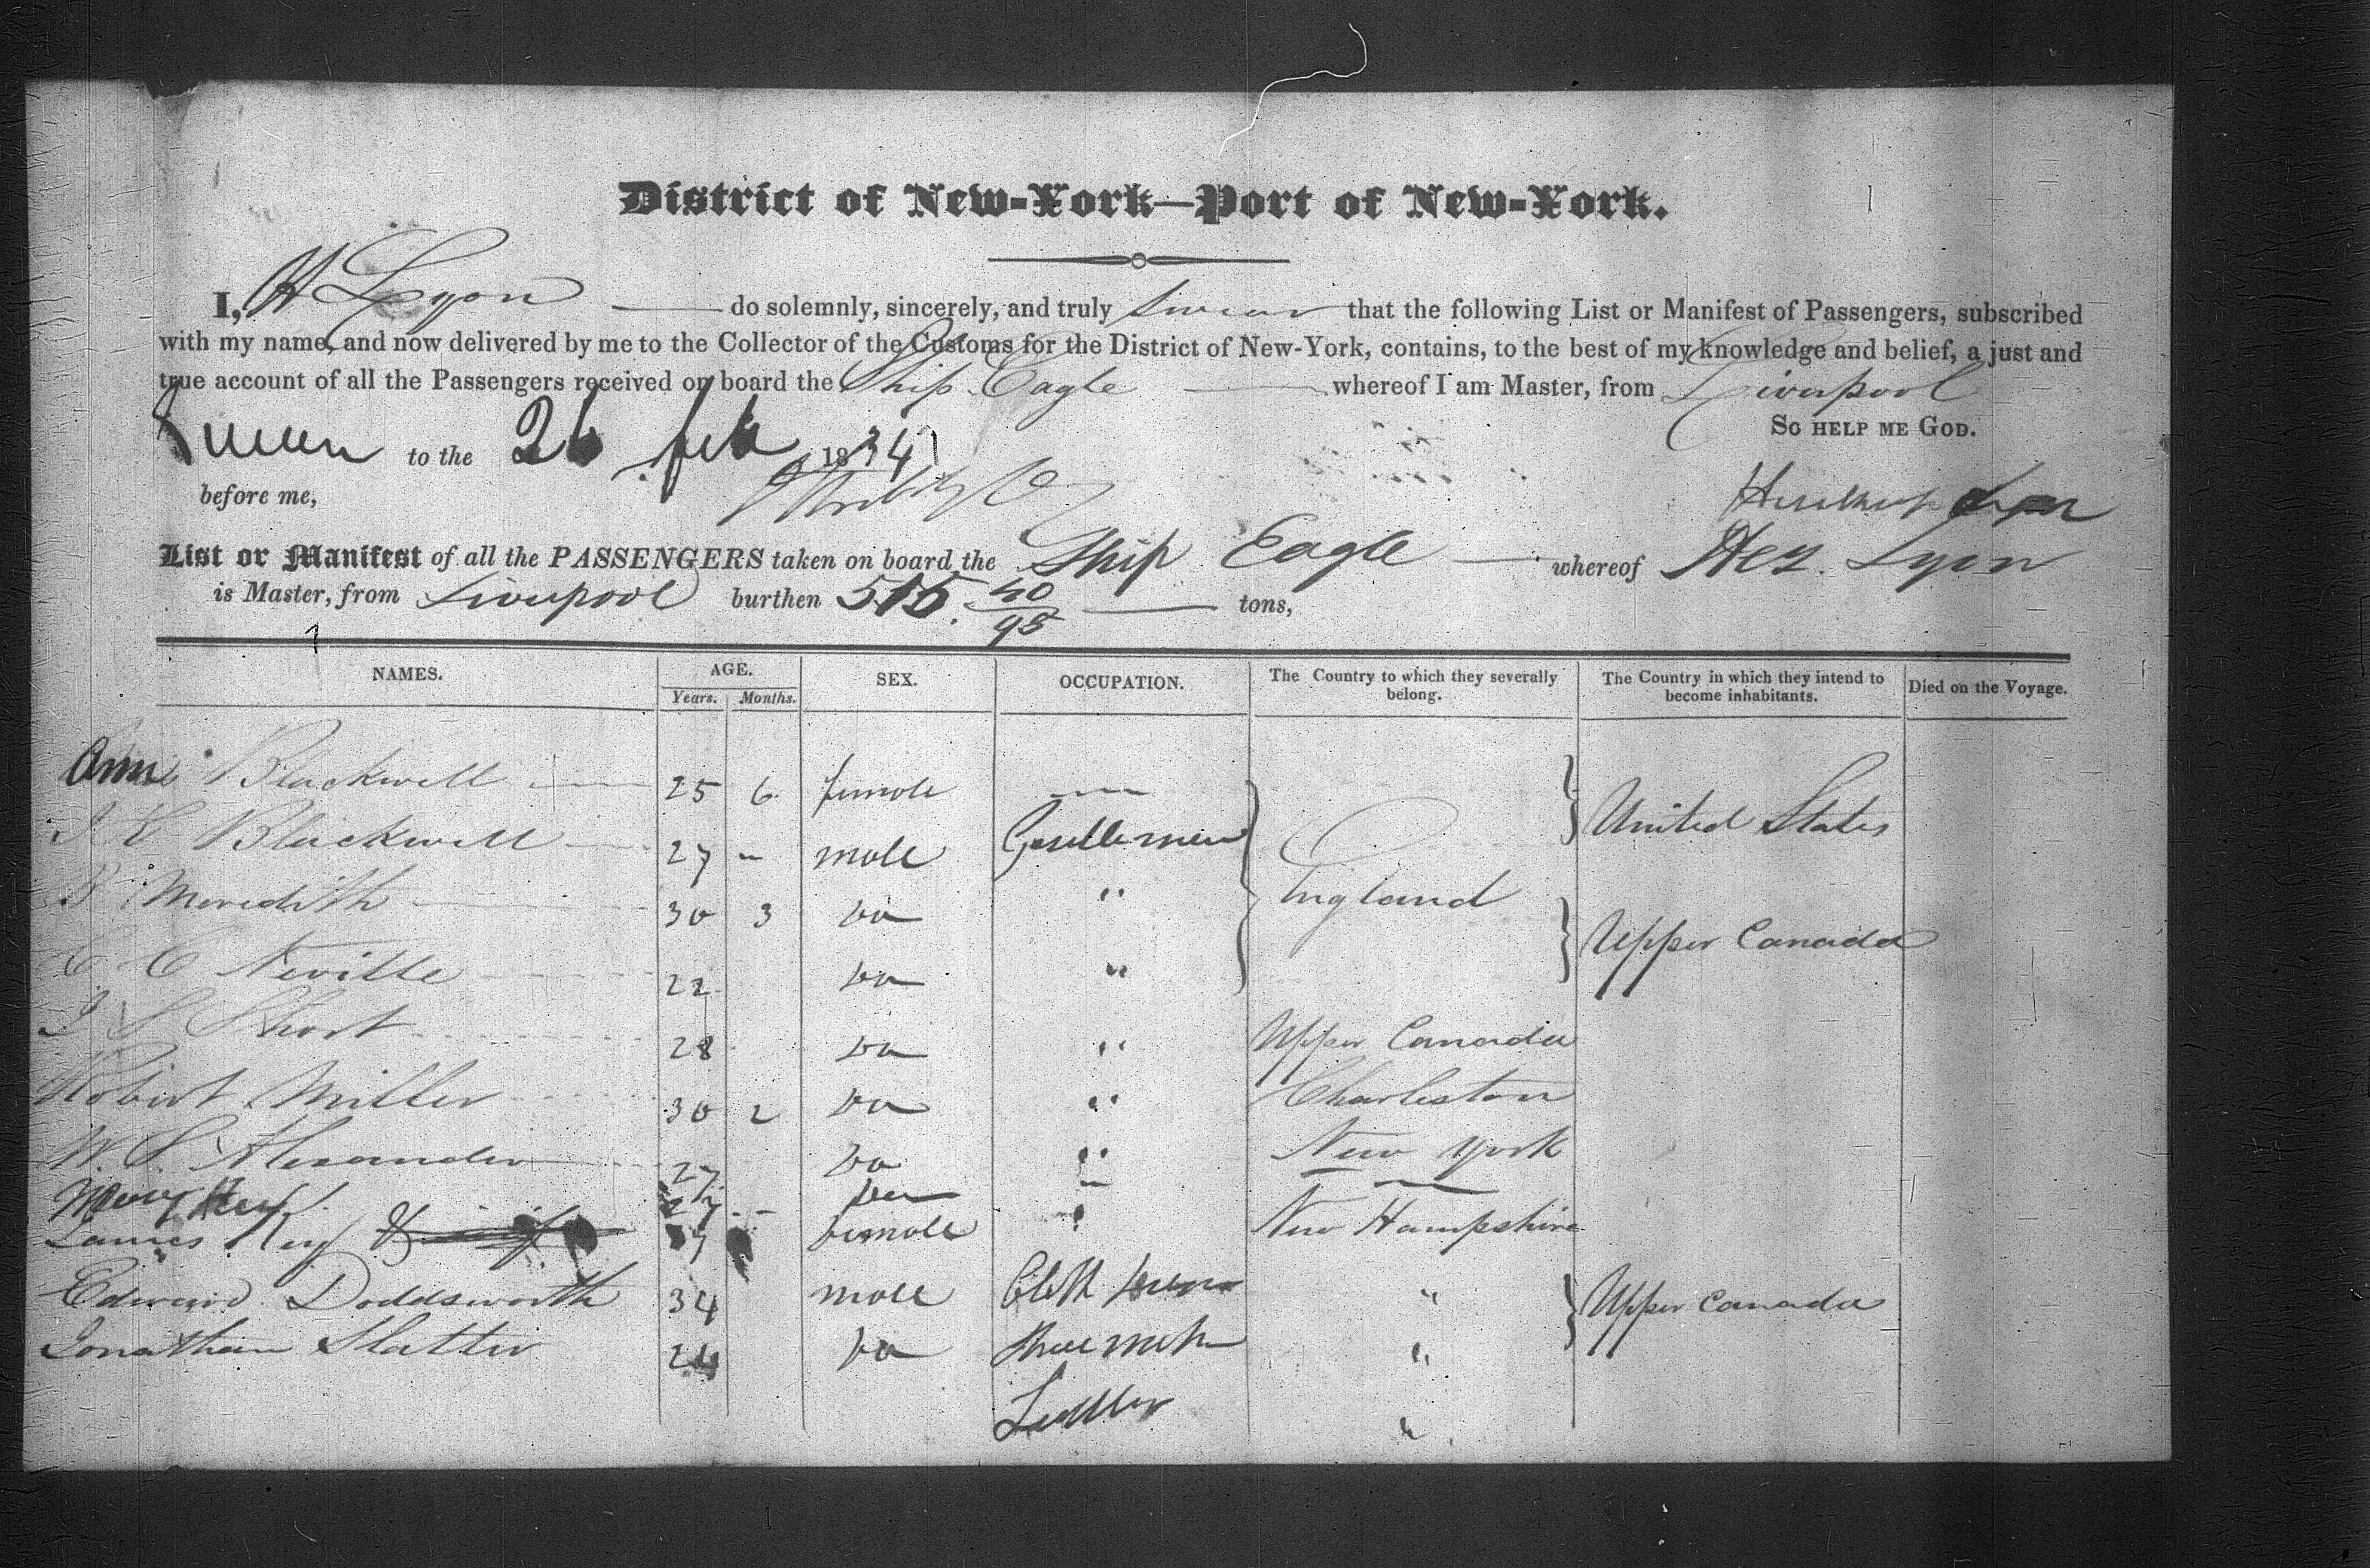 District of New-York—Port of New-York.
I, H Lyon do solemnly, sincerely, and truly swear that the following List or Manifest of Passengers, subscribed
with my name, and now delivered by me to the Collector of the Customs for the District of New-York, contains, to the best of my knowledge and belief, a just and
true account of all the Passengers received on board the Ship Eagle whereof I am Master, from Liverpool
So HELP ME GOD.
to the 26 feb 1834
before me,
Lyon
List or Manifest of all the PASSENGERS taken on board the Ship Eagle whereof Hez. Lyon
is Master, from Liverpool burthen 515. 40/95 tons,
NAMES. AGE. SEX. OCCUPATION. The Country to which they severally belong. The Country in which they intend to become inhabitants. Died on the Voyage.
Years. Months.
Ann Blackwell 25 6 female
Blackwell 27 " male Gentlemen United States
Meredith 30 3 Do " England
C C Neville 22 Do " Upper Canada
J S Short 28 Do " Upper Canada
Robert Miller 30 2 Do " Charleston
W. S. Alexander 27 Do " New York
Mary Key 27 Do
James Key & female " New Hampshire
Edward Doddsworth 34 male Cloth " Upper Canada
Jonathan Slatter 24 Do "
"